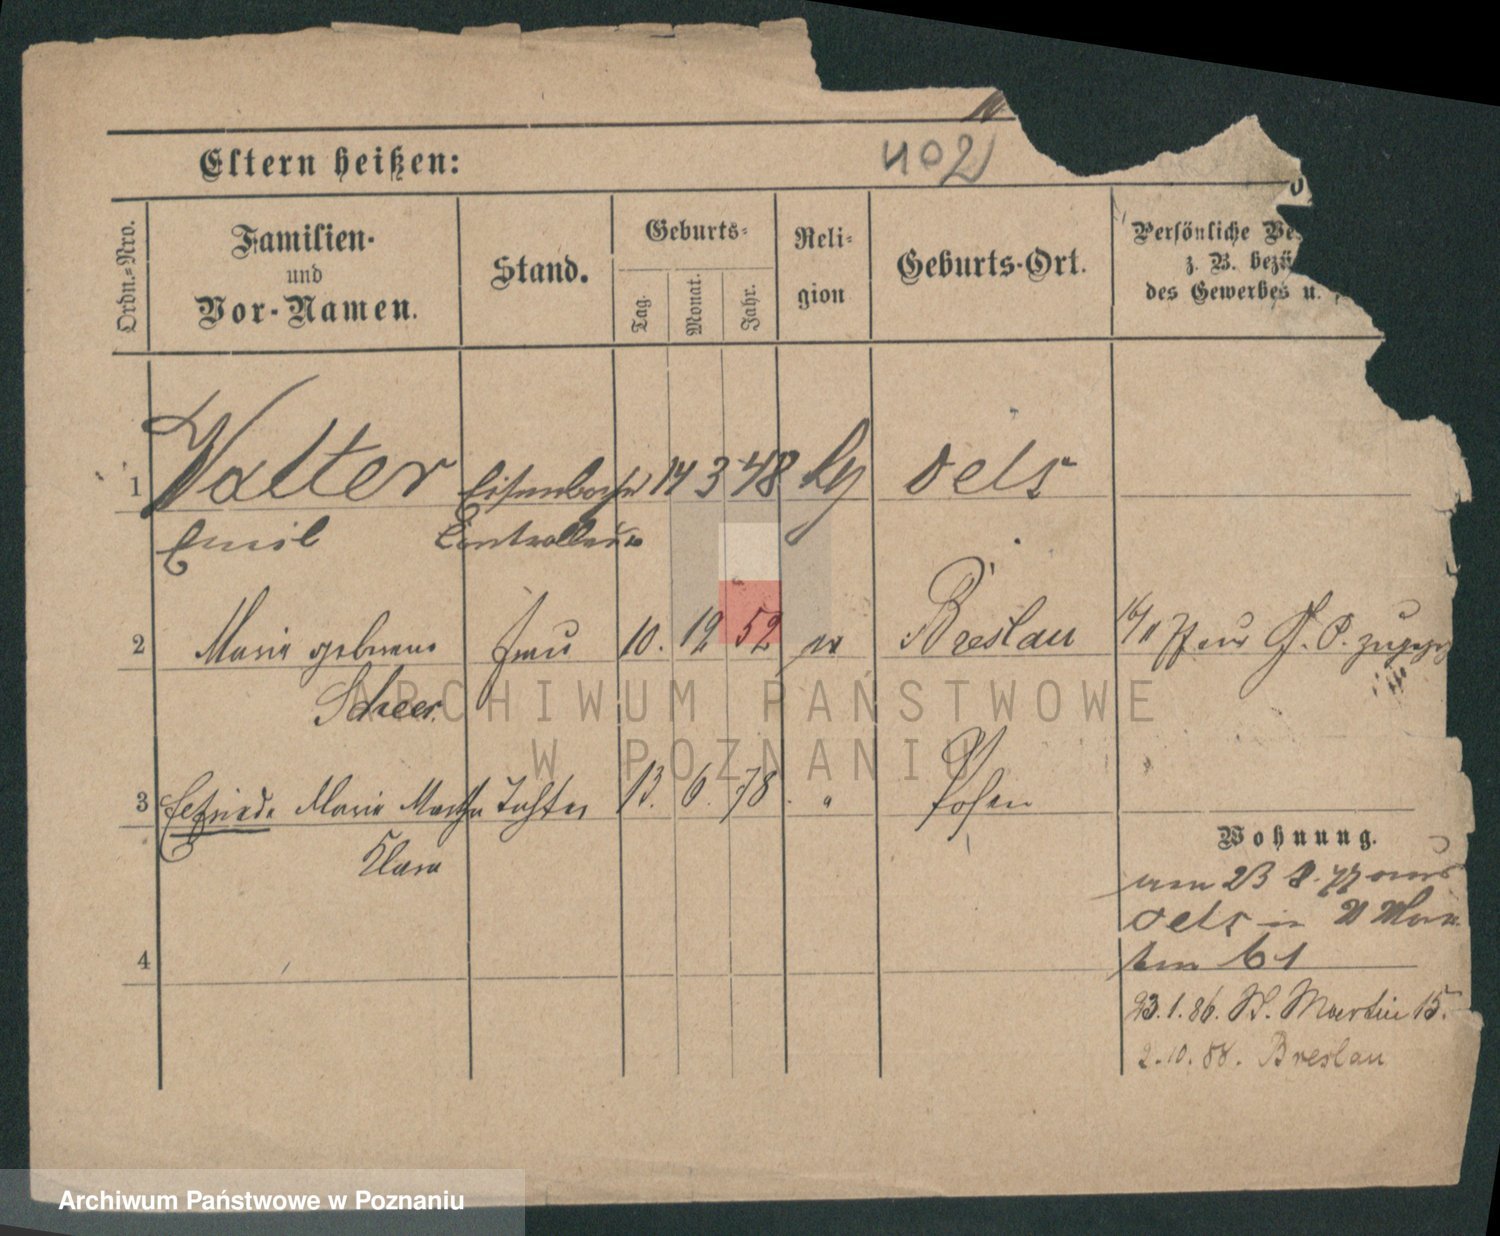 402
Eltern heißen:
Ordn.-Nro. Familien- und Vor-Namen. Stand. Geburts- Tag. Monat. Jahr. Reli-gion Geburts-Ort. Persönliche z. B. des Gewerbes u.
1 Walter Eisenbahn 14 3 48 Ev Oels
Emil Controlleur
2 Marie geborene Frau 10. 12 52 Breslau
Scheer
3 Elfriede Marie Martha Tochter 13. 6. 78. " Posen
Klara
Wohnung.
am 23 8. 77 aus
Oels in
4 ten 61
23. 1. 86. St. Martin 15.
2. 10. 88. Breslau
ARCHIWUM PAŃSTWOWE
W POZNANIU
Archiwum Państwowe w Poznaniu